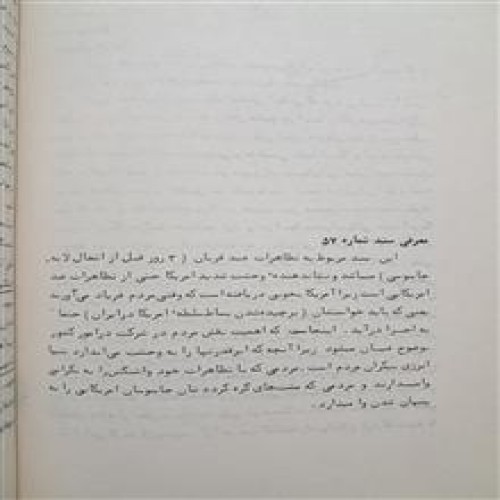 معرفی سند شماره ۵۷
این سند مربوط به تظاهرات عید قربان ( ۳ روز قبل از اشغال لانه
جاسوسی ) میباشد و نشاندهنده وحشت شدید آمریکا حتی از تظاهرات ضد
آمریکایی است زیرا آمریکا بخوبی دریافته است که وقتی مردم فریاد می‌آورند
یعنی که باید خواستشان ( برچیده‌شدن بساط سلطه آمریکا در ایران ) حتما
به اجرا درآید . اینجاست که اهمیت نقش مردم در شرکت در امور کشور
بوضوح نمایان میشود زیرا آنچه که ابرقدرتها را به وحشت می‌اندازد تنها
انرژی بیکران مردم است . مردمی که با تظاهرات خود واشنگتن را به نگرانی
وامیدارند و مردمی که مشت‌های گره کرده‌شان جاسوسان آمریکائی را به
پنهان شدن وا میدارد .